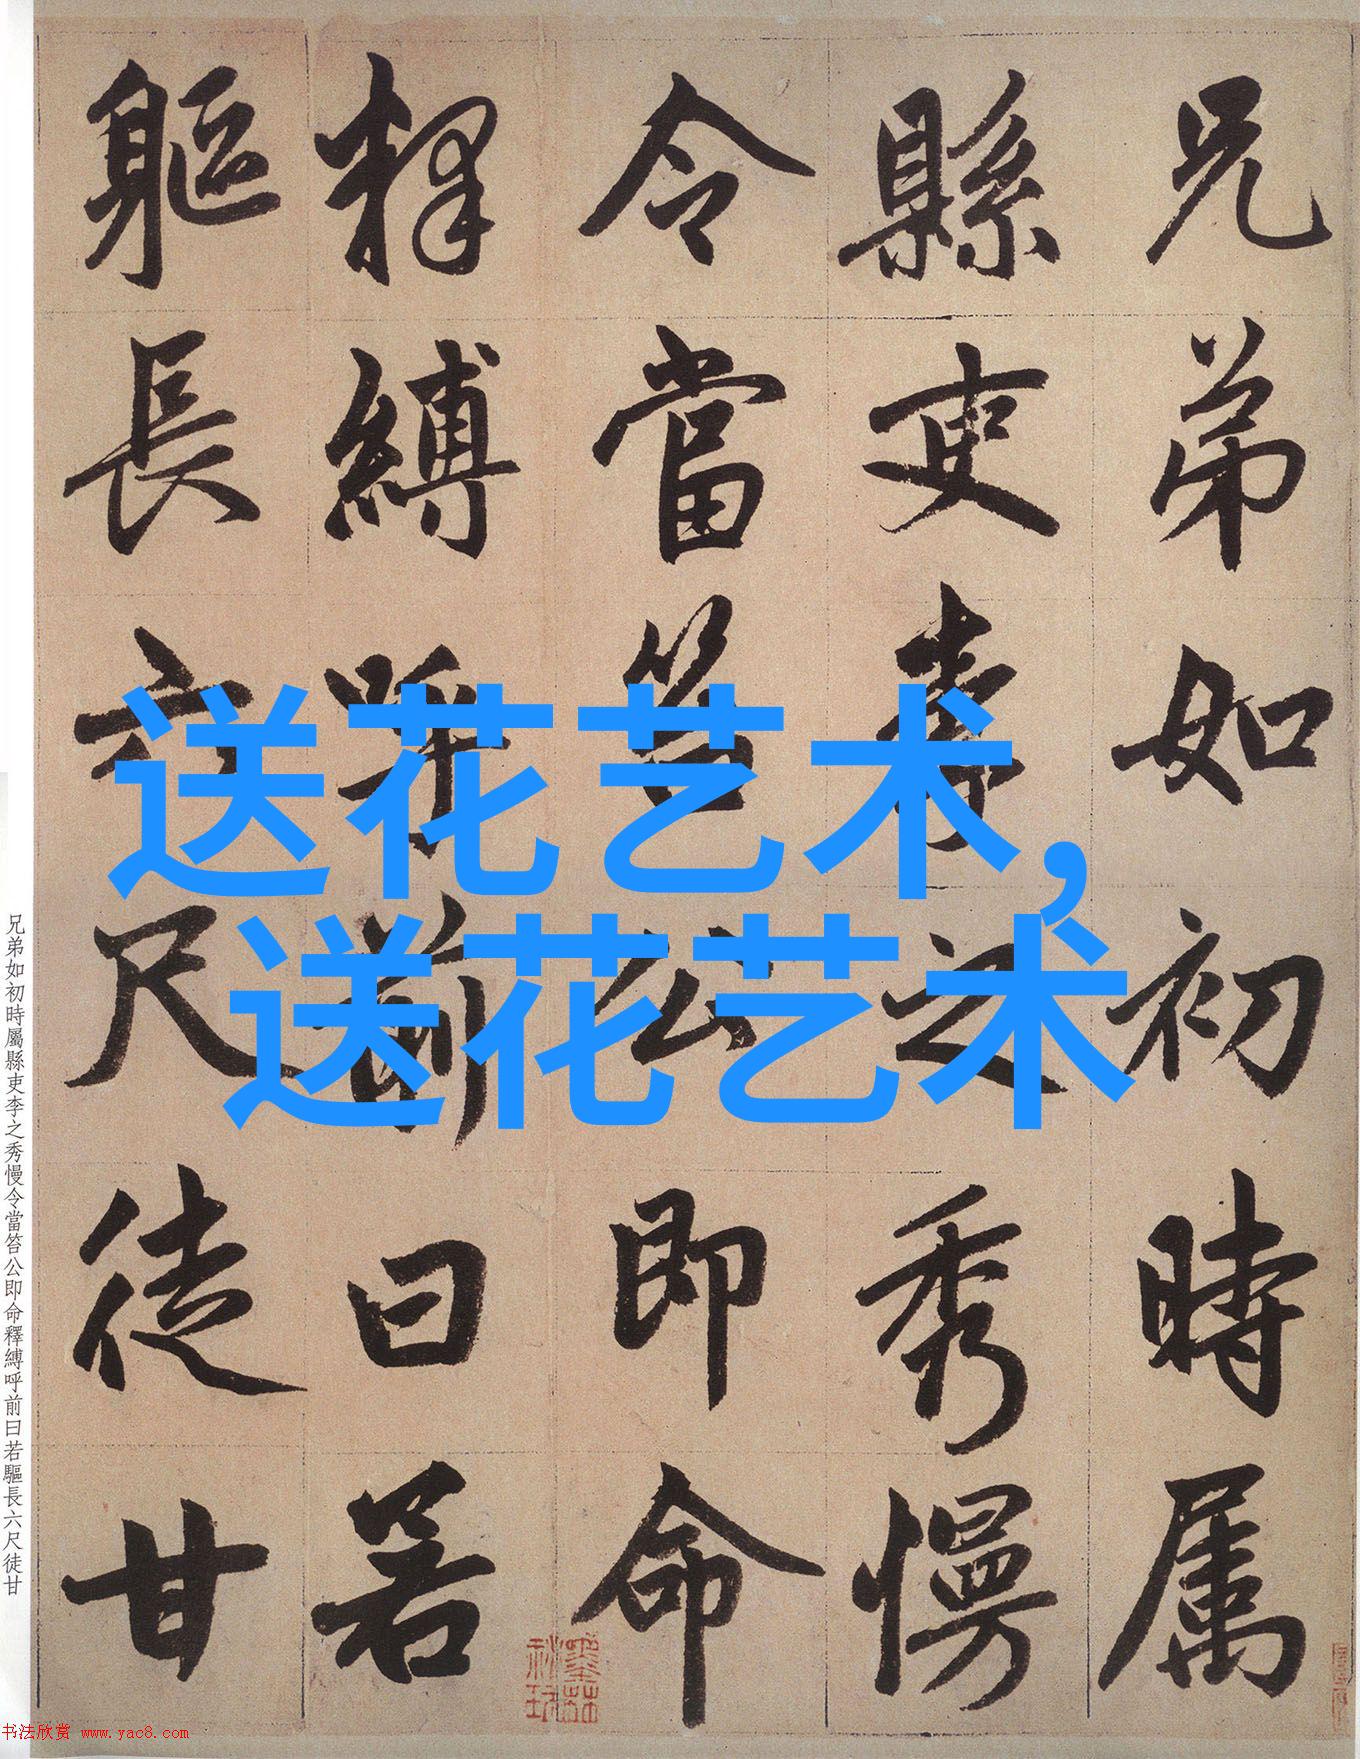 兄弟如初時属
縣吏李之秀慢
令當笞公即命
釋縛呼前曰若
軀長六尺徒甘
送花艺术,
送花艺术
兄弟如初時屬縣吏李之秀慢令當笞公即命釋縛呼前曰若軀長六尺徒甘
书法欣赏 www.yac8.com